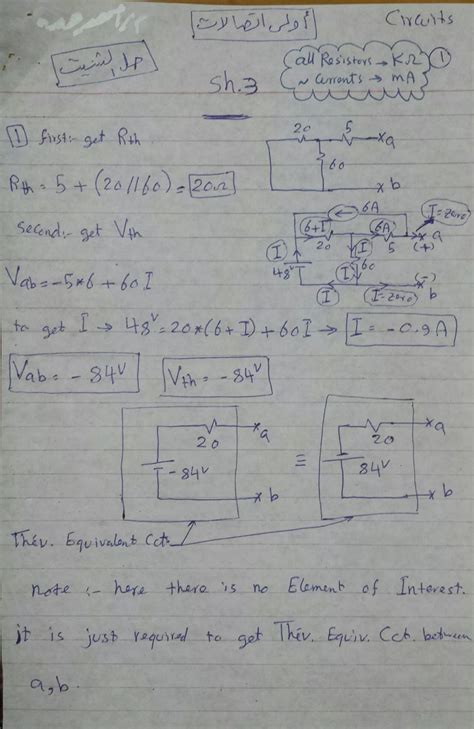 أولى اتصالات
Circuits
حل الشيت
Sh.3
all Resistors → KΩ
~ currents → mA
1
1 first:- get Rth
20 5 a
60
b
Rth = 5 + (20//60) = 20Ω
second:- get Vth
6A I=zero
6+I 6A a
I 20 I 5 (+)
48V I 60 (-)
I I=zero b
Vab = -5*6 + 60I
to get I → 48V = 20*(6+I) + 60I → I = -0.9A
Vab = -84V Vth = -84V
20 a
-84V
b
≡
20 a
84V
b
Thév. Equivalent Ccts
note :- here there is no Element of Interest.
it is just required to get Thév. Equiv. Cct. between
a,b.